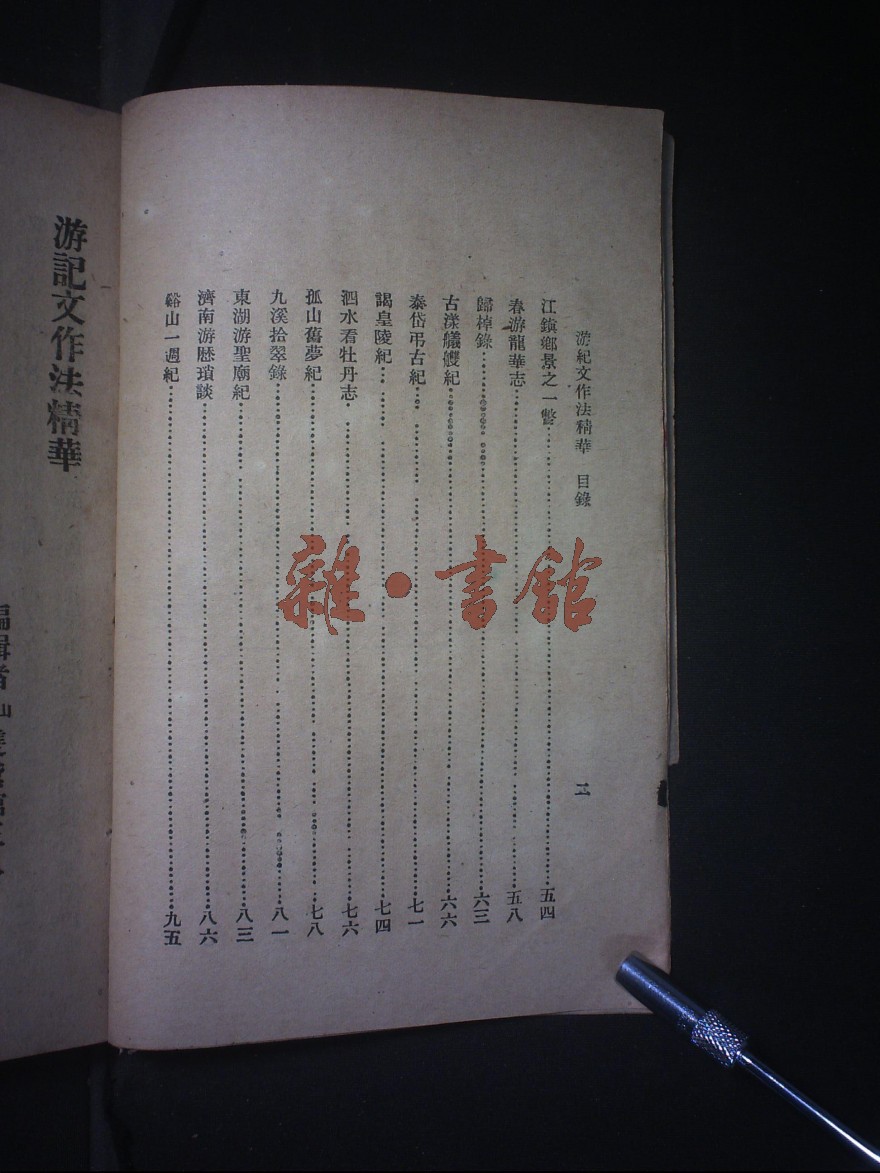 游紀文作法精華　目錄
二
江鎮鄉景之一瞥……五四
春游龍華志……五八
歸棹錄……六三
古漾艤艭紀……六六
泰岱弔古紀……七一
謁皇陵紀……七四
泗水看牡丹志……七六
孤山舊夢紀……七八
九溪拾翠錄……八一
東湖游聖廟紀……八三
濟南游歷瑣談……八六
谿山一週紀……九五
游記文作法精華
編輯者
雜・書館